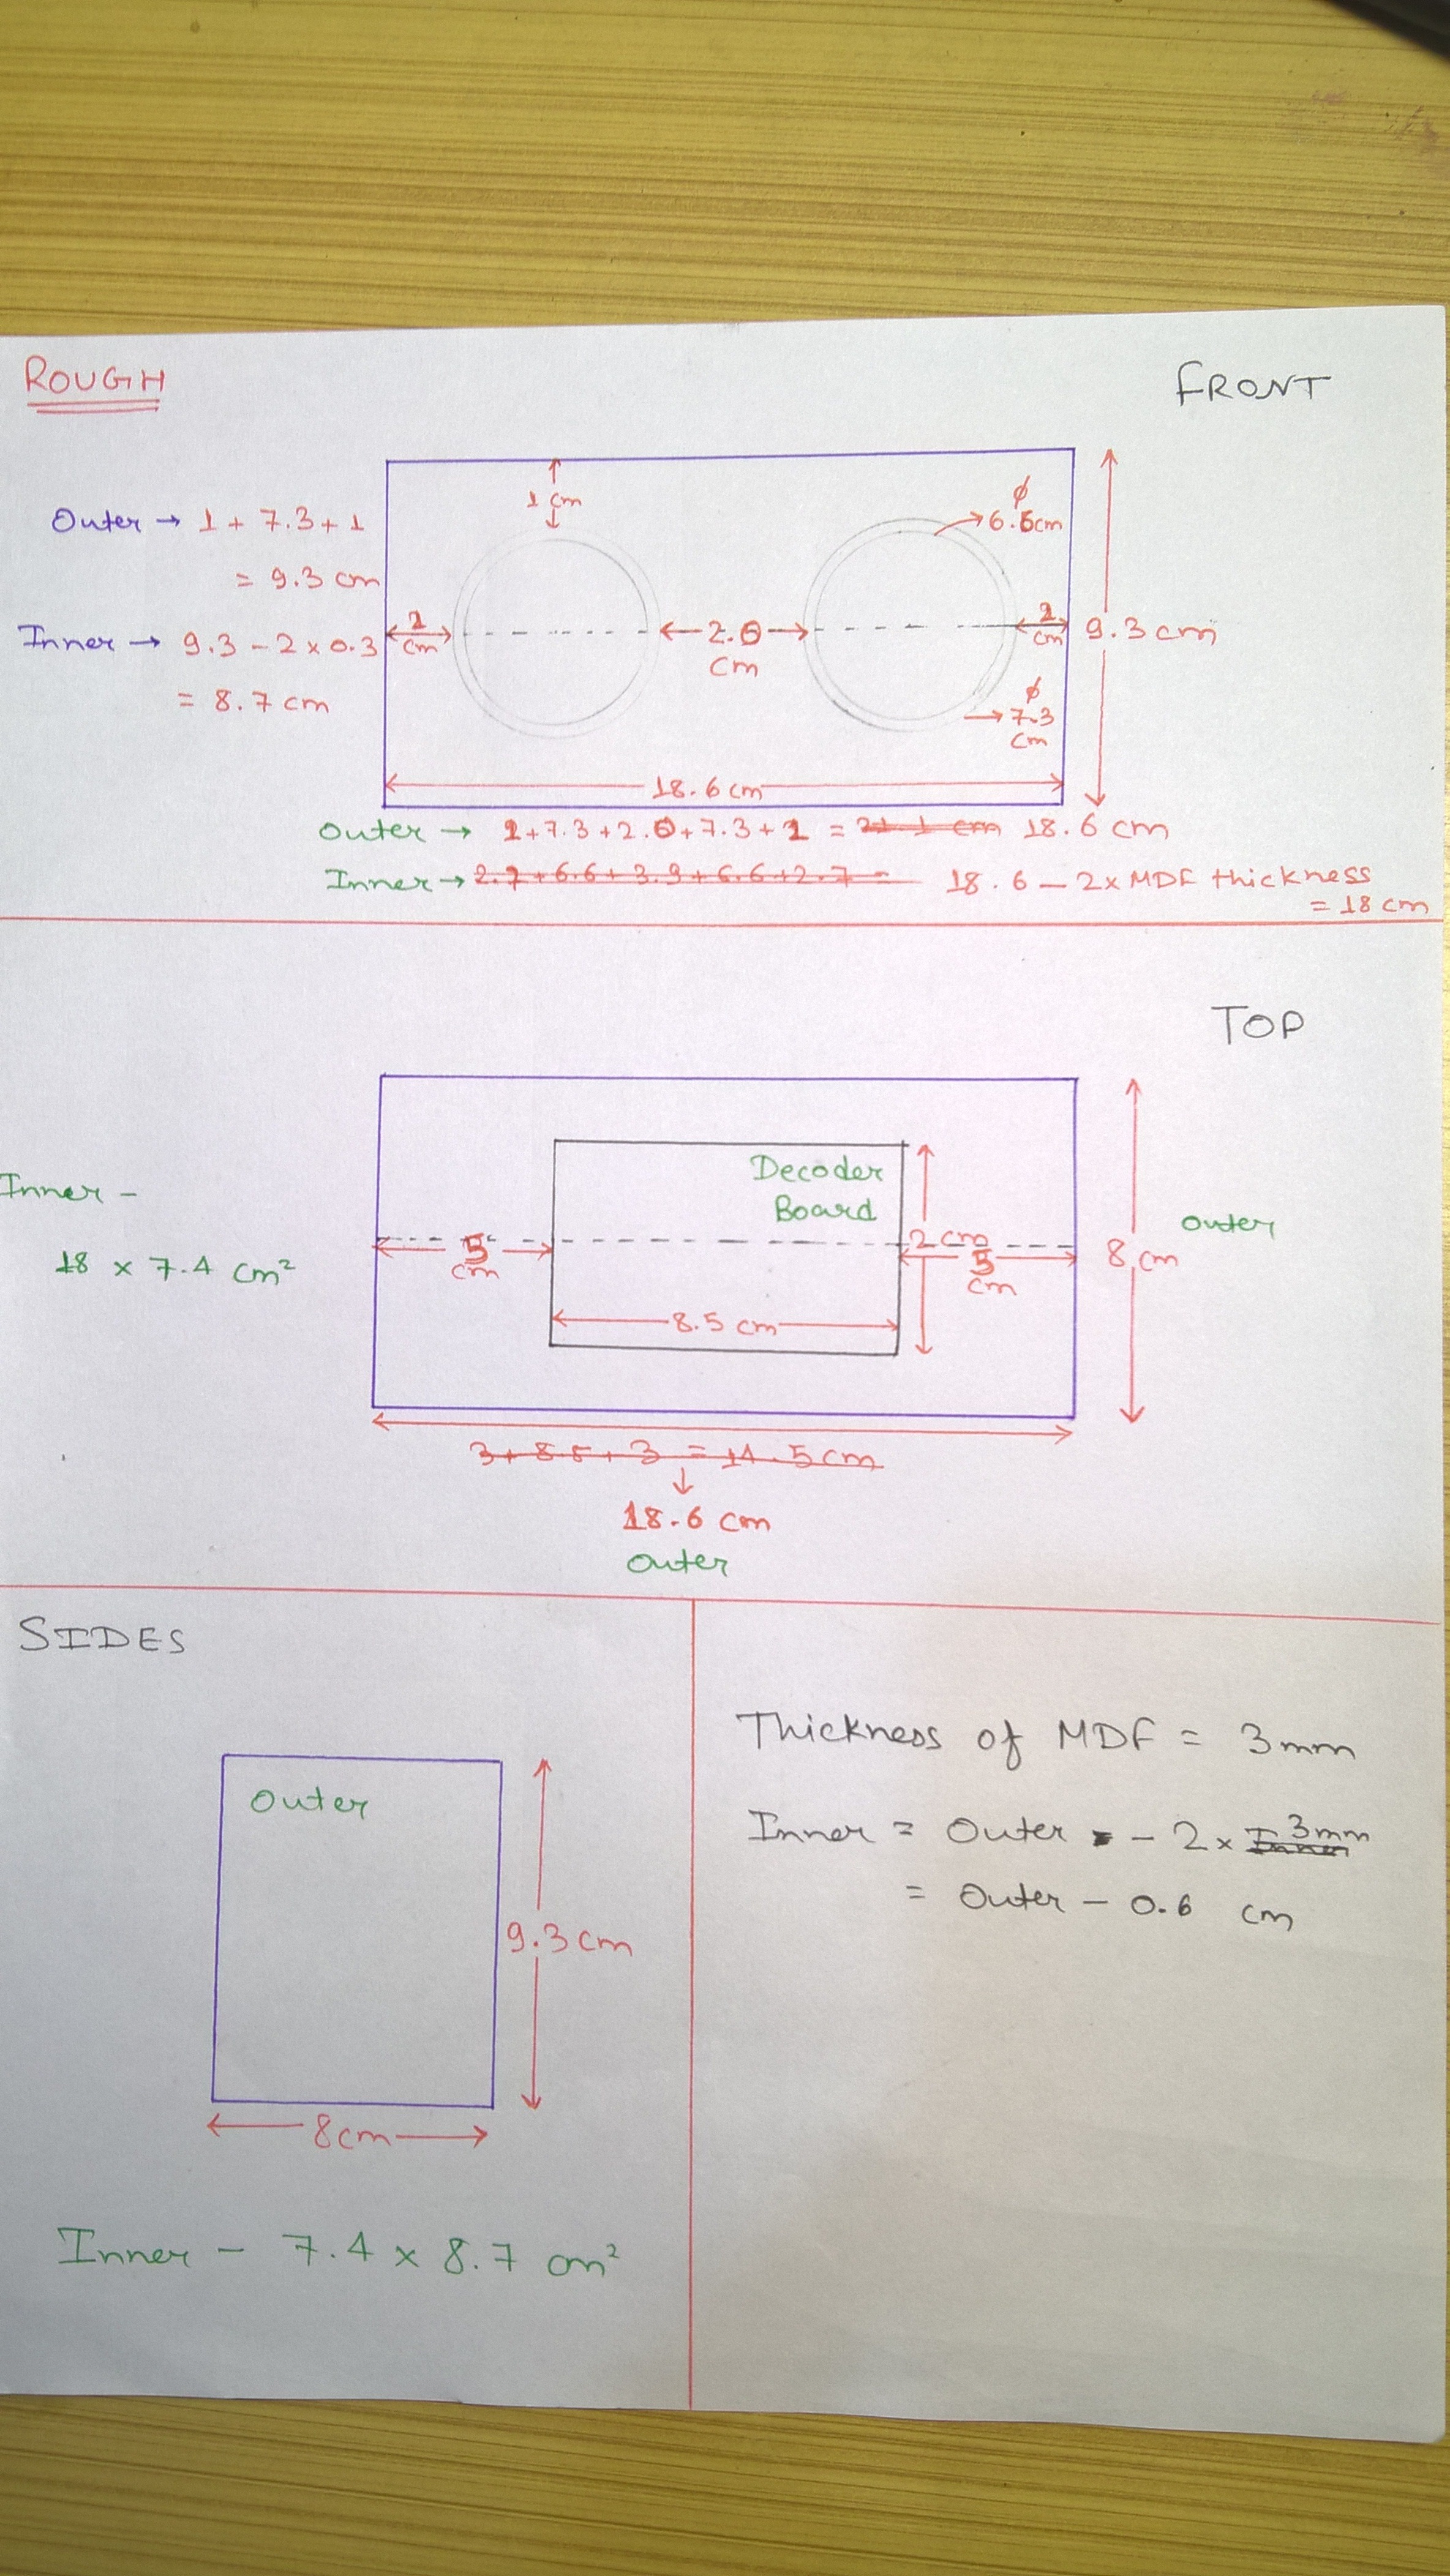 ROUGH
FRONT
Outer → 1 + 7.3 + 1
= 9.3 cm
Inner → 9.3 - 2 x 0.3
= 8.7 cm
1 cm
2 cm
← 2.0 → cm
2 cm
6.6cm φ
→ 7.3 φ cm
9.3 cm
18.6cm
Outer → 1+7.3+2.0+7.3+1 = 21.1 cm 18.6 cm
Inner → 2.7+6.6+3.9+6.6+2.7 = 18.6 - 2xMDF thickness
= 18 cm
TOP
Inner -
18 x 7.4 cm²
Decoder
Board
5 cm
8.5 cm
2 cm
5 cm
8 cm
outer
3+8.5+3 = 14.5cm
↓
18.6 cm
outer
SIDES
Outer
9.3cm
8cm
Inner - 7.4 x 8.7 cm²
Thickness of MDF = 3mm
Inner = Outer - 2 x Inner 3mm
= Outer - 0.6 cm